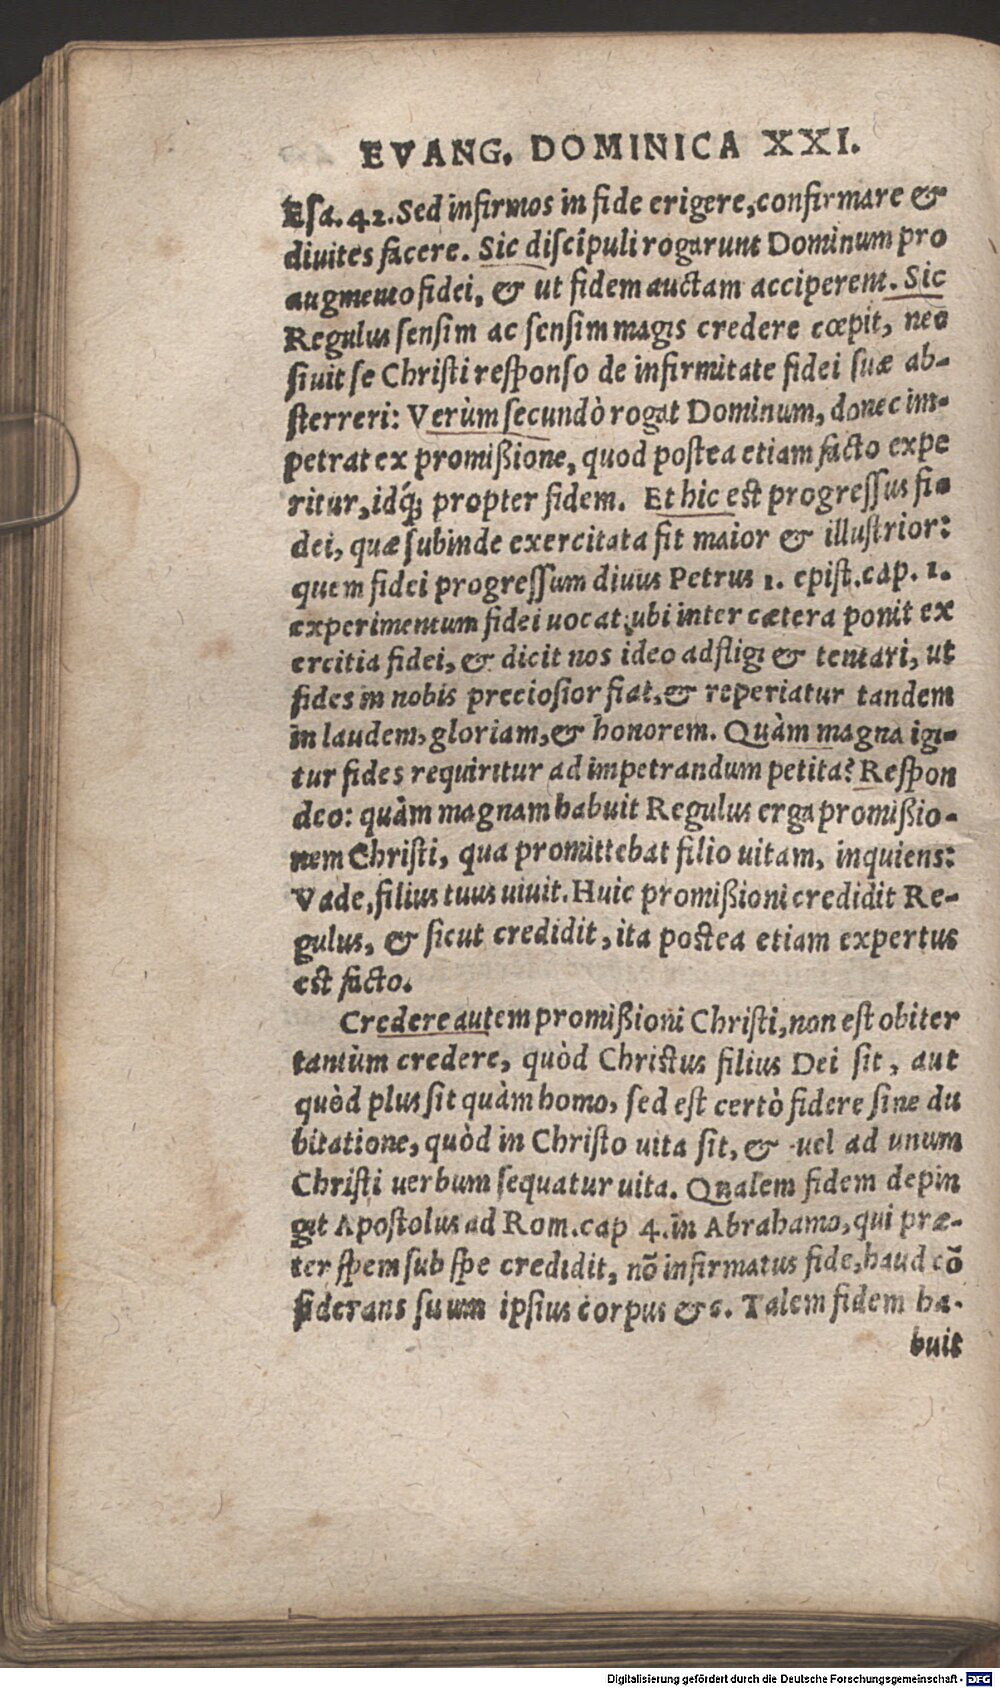 EVANG. DOMINICA XXI.
Esa. 42. Sed infirmos in fide erigere, confirmare &
diuites facere. Sic discipuli rogarunt Dominum pro
augmento fidei, & ut fidem auctam acciperent. Sic
Regulus sensim ac sensim magis credere cœpit, nec
siuit se Christi responso de infirmitate fidei suæ ab-
sterreri: Verùm secundò rogat Dominum, donec im-
petrat ex promißione, quod postea etiam facto expe
ritur, idq́; propter fidem. Et hic est progressus fi-
dei, quæ subinde exercitata fit maior & illustrior:
quem fidei progressum diuus Petrus 1. epist. cap. 1.
experimentum fidei uocat, ubi inter cætera ponit ex
ercitia fidei, & dicit nos ideo adfligi & tentari, ut
fides in nobis preciosior fiat, & reperiatur tandem
in laudem, gloriam, & honorem. Quàm magna igi-
tur fides requiritur ad impetrandum petita? Respon
deo: quàm magnam habuit Regulus erga promißio-
nem Christi, qua promittebat filio uitam, inquiens:
Vade, filius tuus uiuit. Huic promißioni credidit Re-
gulus, & sicut credidit, ita postea etiam expertus
est facto.
Credere autem promißioni Christi, non est obiter
tantùm credere, quòd Christus filius Dei sit, aut
quòd plus sit quàm homo, sed est certò fidere sine du
bitatione, quòd in Christo uita sit, & uel ad unum
Christi uerbum sequatur uita. Qualem fidem depin
git Apostolus ad Rom. cap 4. in Abrahamo, qui præ-
ter spem sub spe credidit, nō infirmatus fide, haud cō
siderans suum ipsius corpus &c. Talem fidem ha-
buit
Digitalisierung gefördert durch die Deutsche Forschungsgemeinschaft - DFG